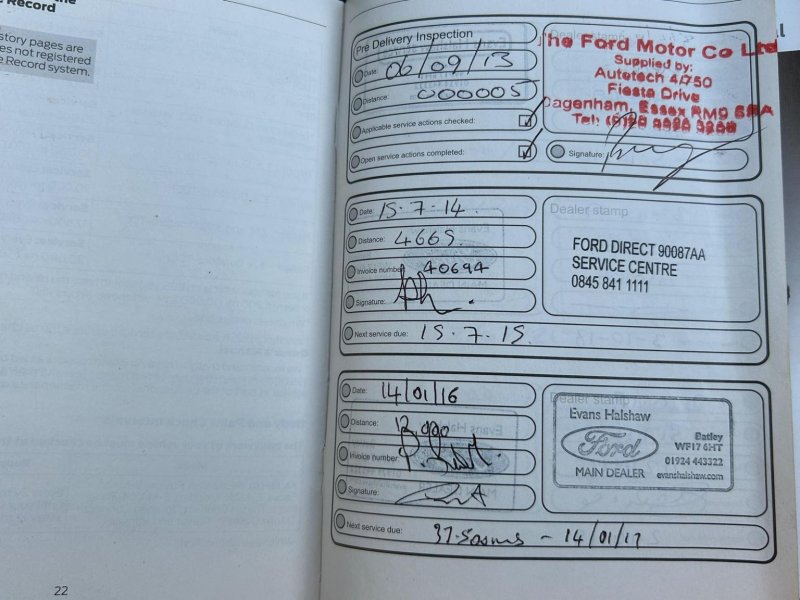 Record
story pages are
es not registered
e Record system.
22
Pre Delivery Inspection
Date: 06/09/13
Distance: 000005
Applicable service actions checked:
Open service actions completed:
The Ford Motor Co Ltd
Supplied by:
Autotech 4/750
Fiesta Drive
Dagenham, Essex RM9 6RA
Tel:
Signature:
Date: 15.7.14.
Distance: 4665.
Invoice number 40694
Signature:
Next service due: 15.7.15.
Dealer stamp
FORD DIRECT 90087AA
SERVICE CENTRE
0845 841 1111
Date: 14/01/16
Distance:
Invoice number:
Signature:
Next service due: 14/01/17
Dealer stamp
Evans Halshaw
Ford
MAIN DEALER
Batley
WF17 6HT
01924 443322
evanshalshaw.com